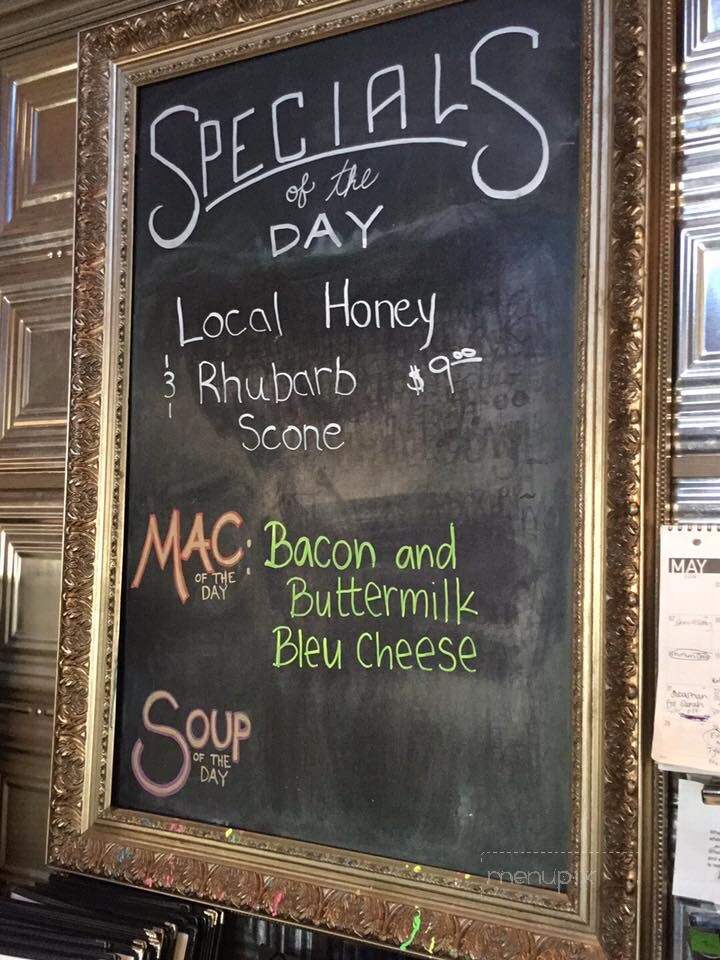 SPECIALS
of the
DAY
Local Honey
& Rhubarb $9.00
Scone
MAC: Bacon and
OF THE
DAY
Buttermilk
Bleu Cheese
SOUP
OF THE
DAY
MAY
for Sarah
menupix